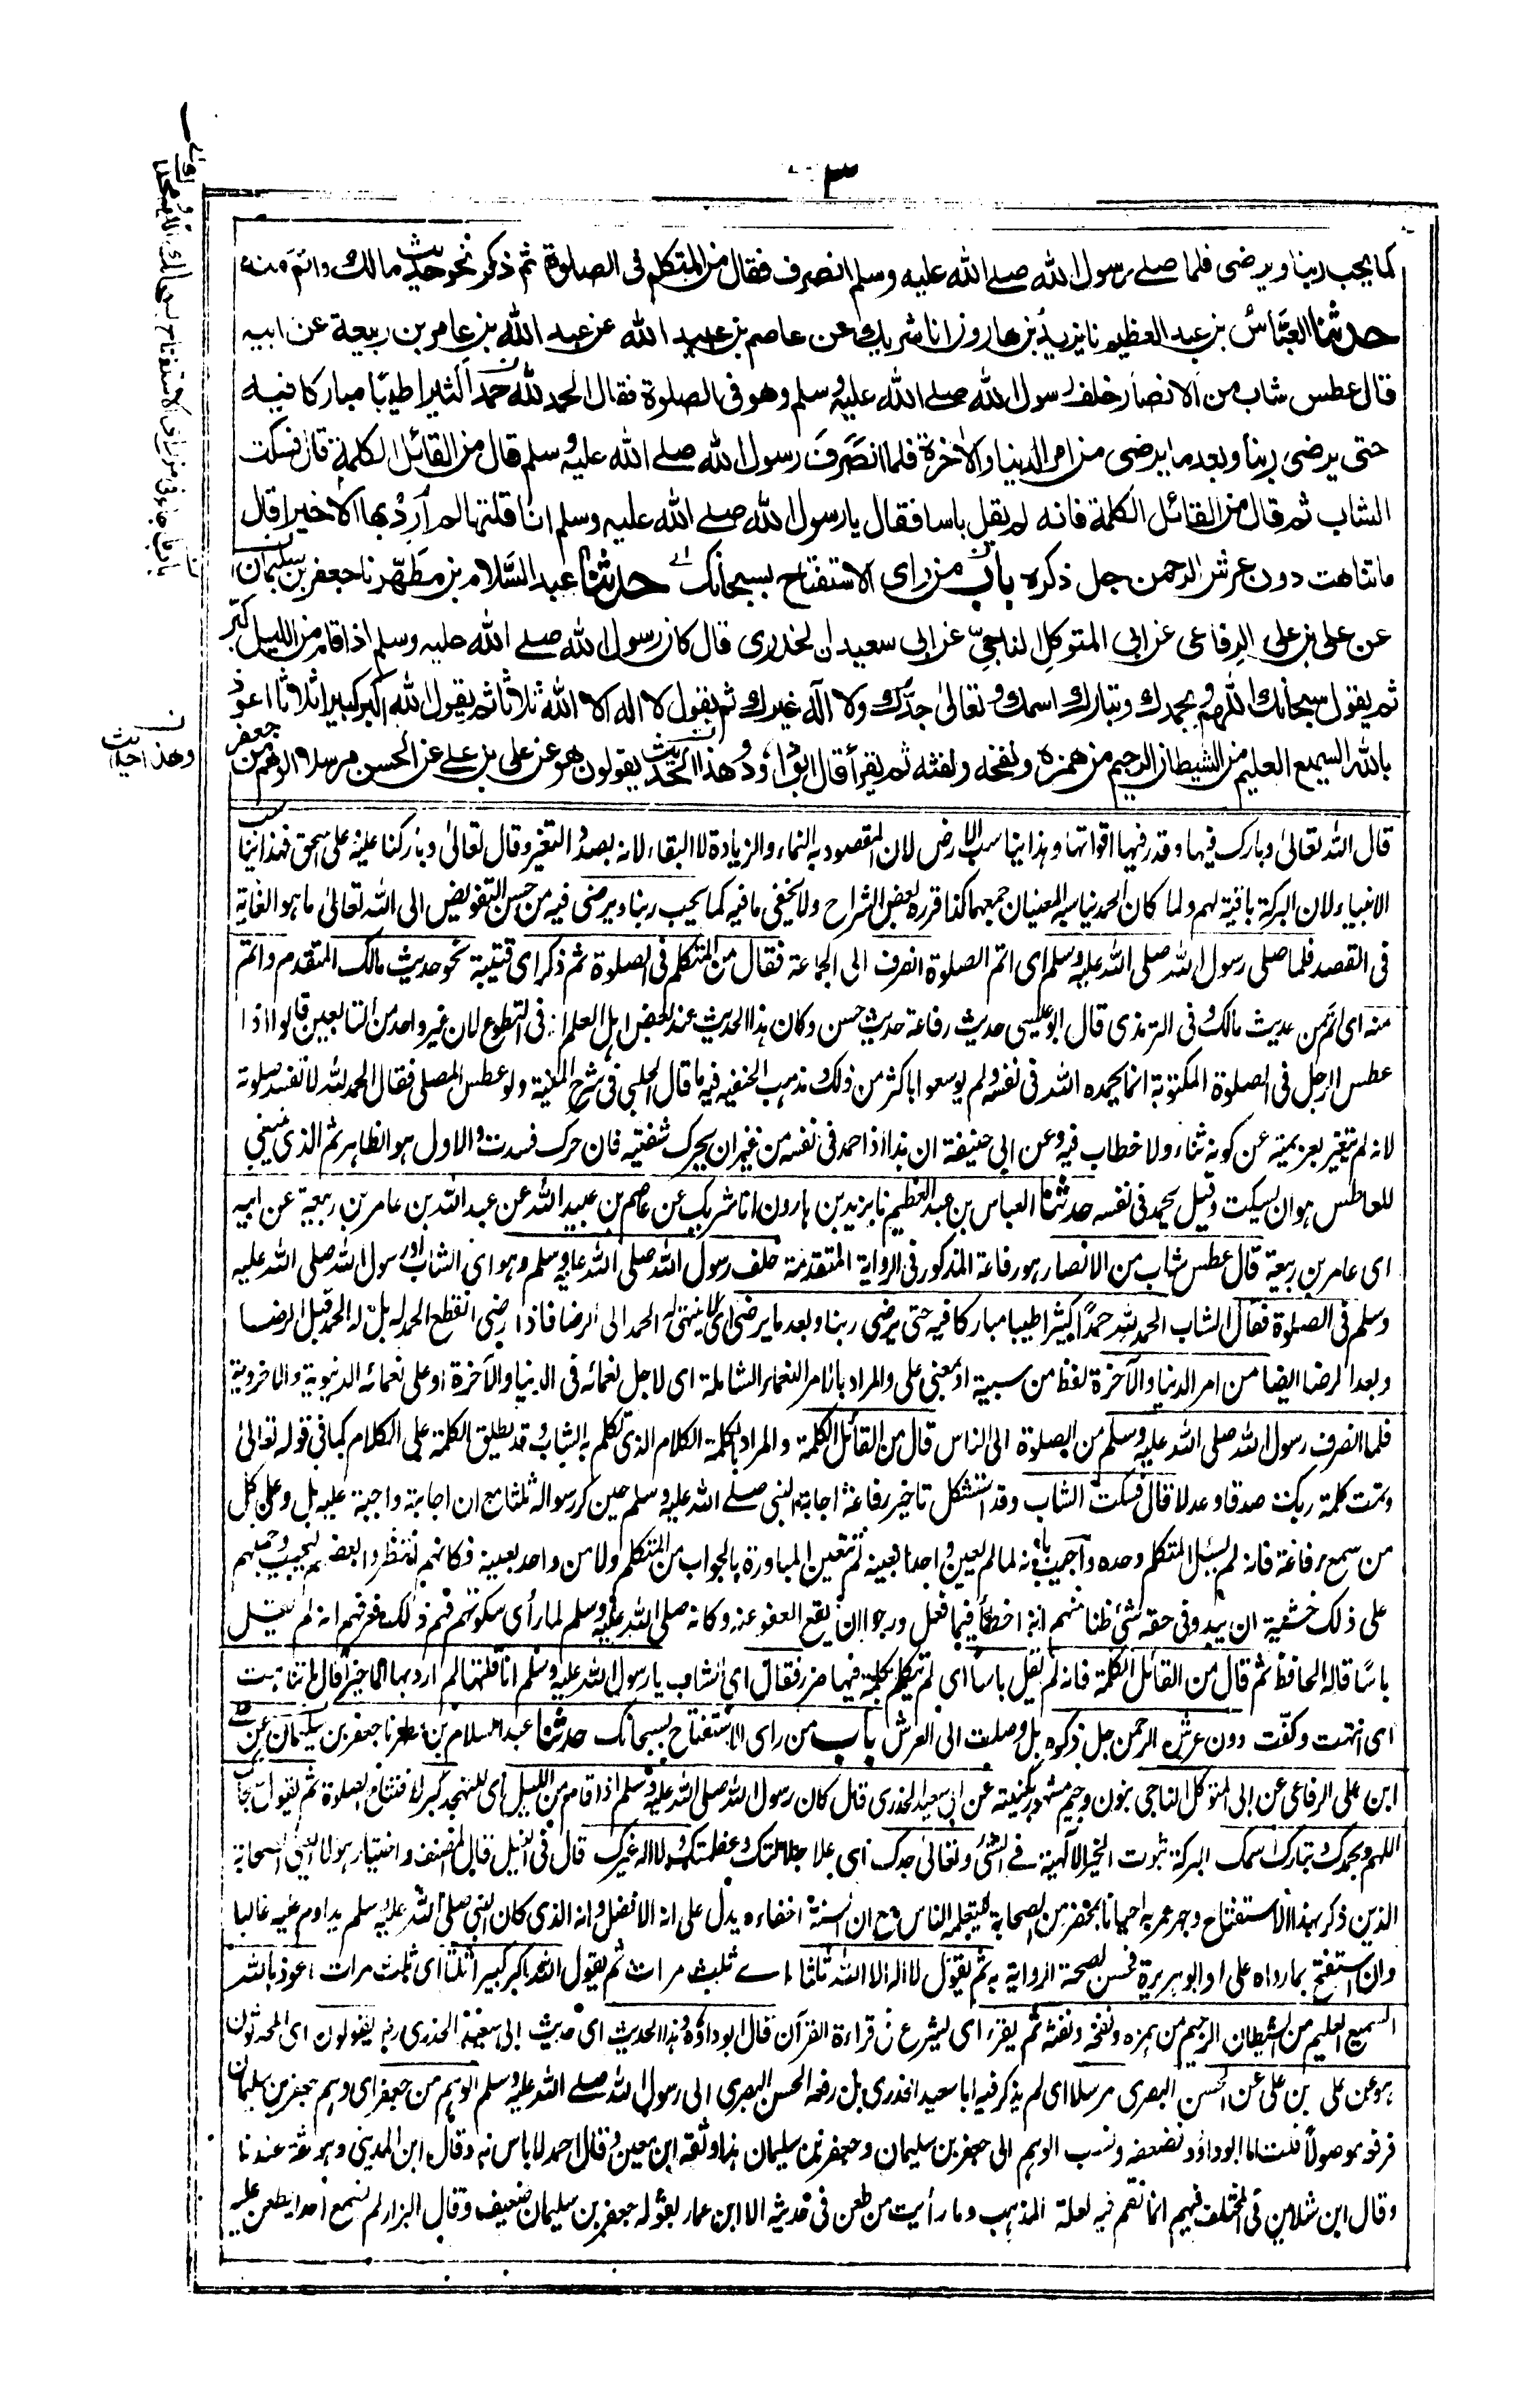 ٣
كما يحب ربنا ويرضى فلما صلے رسول الله صلے الله عليه وسلم انصرف فقال من المتكلم فى الصلوة ثم ذكر نحو حديث مالك واتم منه
حدثنا العباس بن عبد العظيم نا يزيد بن هارون انا شريك عن عاصم بن عبيد الله عن عبد الله بن عامر بن ربيعة عن ابيه
قال عطس شاب من الانصار خلف رسول الله صلے الله عليه وسلم وهو فى الصلوة فقال الحمد لله حمدا كثيرا طيبا مباركا فيه
حتى يرضى ربنا وبعد ما يرضى من امر الدنيا والاخرة فلما انصرف رسول الله صلے الله عليه وسلم قال من القائل الكلمة قال فسكت
الشاب ثم قال من القائل الكلمة فانه لم يقل باسا فقال يا رسول الله صلے الله عليه وسلم انا قلتها لم ارد بها الا خيرا قال
ما تناهت دون عرش الرحمن جل ذكره باب من راى الاستفتاح بسبحانك حدثنا عبد السلام بن مطهر نا جعفر بن سليمان
عن على بن على الرفاعى عن ابى المتوكل الناجى عن ابى سعيد ن الخدرى قال كان رسول الله صلے الله عليه وسلم اذا قام من الليل كبر
ثم يقول سبحانك اللهم وبحمدك وتبارك اسمك وتعالى جدك ولا اله غيرك ثم يقول لا اله الا الله ثلاثا ثم يقول الله اكبر كبيرا ثلاثا اعوذ
بالله السميع العليم من الشيطان الرجيم من همزه ونفخه ونفثه ثم يقرأ قال ابو داود وهذا الحديث يقولون هو عن على بن على عن الحسن مرسلا الوهم من جعفر
وهذا حديث
قال الله تعالى وبارك فيها وقدر فيها اقواتها وهذا يناسب الارض لان المقصود به النماء والزيادة لا البقاء لانه بصدد التغير وقال تعالى وباركنا عليه وعلى اسحق فهذا يناسب
الانبياء لان البركة باقية لهم ولما كان الحمد يناسبه المعنيان جمعهما كذا قرره بعض الشراح ولا يخفى ما فيه كما يحب ربنا ويرضى فيه من حسن التفويض الى الله تعالى ما هو الغاية
فى القصد فلما صلى رسول الله صلى الله عليه وسلم اى اتم الصلوة انصرف الى الجماعة فقال من المتكلم فى الصلوة ثم ذكر اى قتيبة نحو حديث مالك المتقدم واتم
منه اى اتم من حديث مالك وفى الترمذى قال ابو عيسى حديث رفاعة حديث حسن وكان هذا الحديث عند بعض اهل العلم انه فى التطوع لان غير واحد من التابعين قالوا اذا
عطس الرجل فى الصلوة المكتوبة انما يحمد الله فى نفسه ولم يوسعوا باكثر من ذلك ومذهب الحنفية فيه ما قال الحلبى فى شرح المنية ولو عطس المصلى فقال الحمد لله لا تفسد صلوته
لانه لم يتغير بعزيمته عن كونه ثناء ولا خطاب فيه وعن ابى حنيفة ان هذا اذا حمد فى نفسه من غير ان يحرك شفتيه فان حرك فسدت والاول هو الظاهر ثم الذى ينبغى
للعاطس هو ان يسكت وقيل يحمد فى نفسه حدثنا العباس بن عبد العظيم نا يزيد بن هارون انا شريك عن عاصم بن عبيد الله عن عبد الله بن عامر بن ربيعة عن ابيه
اى عامر بن ربيعة قال عطس شاب من الانصار هو رفاعة المذكور فى الرواية المتقدمة خلف رسول الله صلى الله عليه وسلم وهو اى الشاب او رسول الله صلى الله عليه
وسلم فى الصلوة فقال الشاب الحمد لله حمدا كثيرا طيبا مباركا فيه حتى يرضى ربنا وبعد ما يرضى اى لا ينتهى الحمد الى الرضا فاذا رضى انقطع الحمد له بل له الحمد قبل الرضا
وبعد الرضا ايضا من امر الدنيا والآخرة لفظ من سببية او بمعنى على والمراد بالامر النعماء الشاملة اى لاجل نعمائه فى الدنيا والآخرة او على نعمائه الدنيوية والاخروية
فلما انصرف رسول الله صلى الله عليه وسلم من الصلوة الى الناس قال من القائل الكلمة والمراد بالكلمة الكلام الذى تكلم به الشاب وقد يطلق الكلمة على الكلام كما فى قوله تعالى
وتمت كلمة ربك صدقا وعدلا قال فسكت الشاب وقد استشكل تاخير رفاعة اجابة النبى صلے الله عليه وسلم حين كرر سواله ثلثا مع ان اجابته واجبة عليه بل وعلى كل
من سمع رفاعة فانه لم يسئل المتكلم وحده واجيب بانه لما لم يعين واحدا بعينه لم تتعين المبادرة بالجواب من المتكلم ولا من واحد بعينه فكانهم انتظروا بعضهم ليجيب وحملهم
على ذلك خشية ان يبدو فى حقه شئ ظنا منهم انه اخطأ فيما فعل ورجوا ان يقع العفو عنه وكانه صلى الله عليه وسلم لما رأى سكوتهم فهم ذلك فعرفهم انه لم يقل
باسا قاله الحافظ ثم قال من القائل الكلمة فانه لم يقل باسا اى لم يتكلم بكلمة فيها ضرر فقال اى الشاب يا رسول الله صلى الله عليه وسلم انا قلتها لم ارد بها الا خيرا قال ما تناهت
اى انتهت وكفت دون عرش الرحمن جل ذكره بل وصلت الى العرش باب من راى الاستفتاح بسبحانك حدثنا عبد السلام بن مطهر نا جعفر بن سليمان عن على
ابن على الرفاعى عن ابى المتوكل الناجى بنون وجيم مشهور بكنيته عن ابى سعيد الخدرى قال كان رسول الله صلى الله عليه وسلم اذا قام من الليل اى للتهجد كبر لافتتاح الصلوة ثم يقول سبحانك
اللهم وبحمدك وتبارك اسمك البركة ثبوت الخير الالهية فى الشئ وتعالى جدك اى علا جلالتك وعظمتك ولا اله غيرك قال فى النيل قال المصنف واختيار هؤلاء الصحابة
الذين ذكر بهذا الاستفتاح وجهر عمر به احيانا بمحضر من الصحابة ليتعلمه الناس مع ان السنة اخفاءه يدل على انه الافضل وانه الذى كان النبى صلى الله عليه وسلم يداوم عليه غالبا
وان استفتح بما رواه على او ابو هريرة فحسن لصحة الرواية به ثم يقول لا اله الا الله ثلثا اے ثلث مرات ثم يقول الله اكبر كبيرا ثلثا اى ثلث مرات اعوذ بالله
السميع العليم من الشيطان الرجيم من همزه ونفخه ونفثه ثم يقرء اى يشرع فى قراءة القرآن قال ابو داؤد وهذا الحديث اى حديث ابى سعيد الخدرى يقولون اى المحدثون
هو عن على بن على عن الحسن البصرى مرسلا اى لم يذكر فيه ابا سعيد الخدرى بل رفعه الحسن البصرى الى رسول الله صلے الله عليه وسلم الوهم من جعفر اى وهم جعفر بن سليمان
فرفعه موصولا قلت اما ابو داود فضعفه ونسب الوهم الى جعفر بن سليمان وجعفر بن سليمان هذا وثقه ابن معين وقال احمد لا باس به وقال ابن المدينى وهو ثقة عندنا
وقال ابن شاهين فى المختلف فيهم انما نقم فيه لعلة المذهب وما رأيت من طعن فى حديثه الا ابن عمار بقوله جعفر بن سليمان ضعيف وقال البزار لم نسمع احدا يطعن عليه